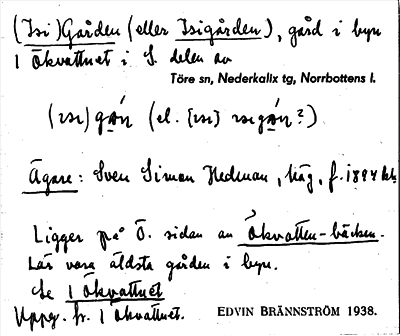 (Isi)Gården (eller Isigården), gård i byn
1 Ökvattnet i S. delen av
Töre sn, Nederkalix tg, Norrbottens l.
Ägare: Sven Simon Hedman, häg, f. 1894
Ligger på Ö. sidan av Ökvatten-bäcken.
Lär vara äldsta gården i byn.
Se 1 Ökvattnet
Uppg. fr. 1 Ökvattnet.
EDVIN BRÄNNSTRÖM 1938.